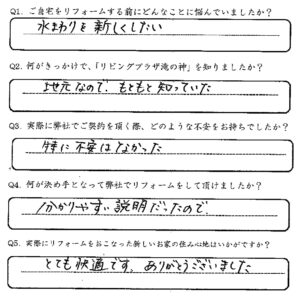 Q1. ご自宅をリフォームする前にどんなことに悩んでいましたか？
水まわりを新しくしたい
Q2. 何がきっかけで、「リビングプラザ滝の神」を知りましたか？
地元なので、もともと知っていた
Q3. 実際に弊社でご契約を頂く際、どのような不安をお持ちでしたか？
特に不安はなかった
Q4. 何が決め手となって弊社でリフォームをして頂けましたか？
分かりやすい説明だったので
Q5. 実際にリフォームをおこなった新しいお家の住み心地はいかがですか？
とても快適です。ありがとうございました